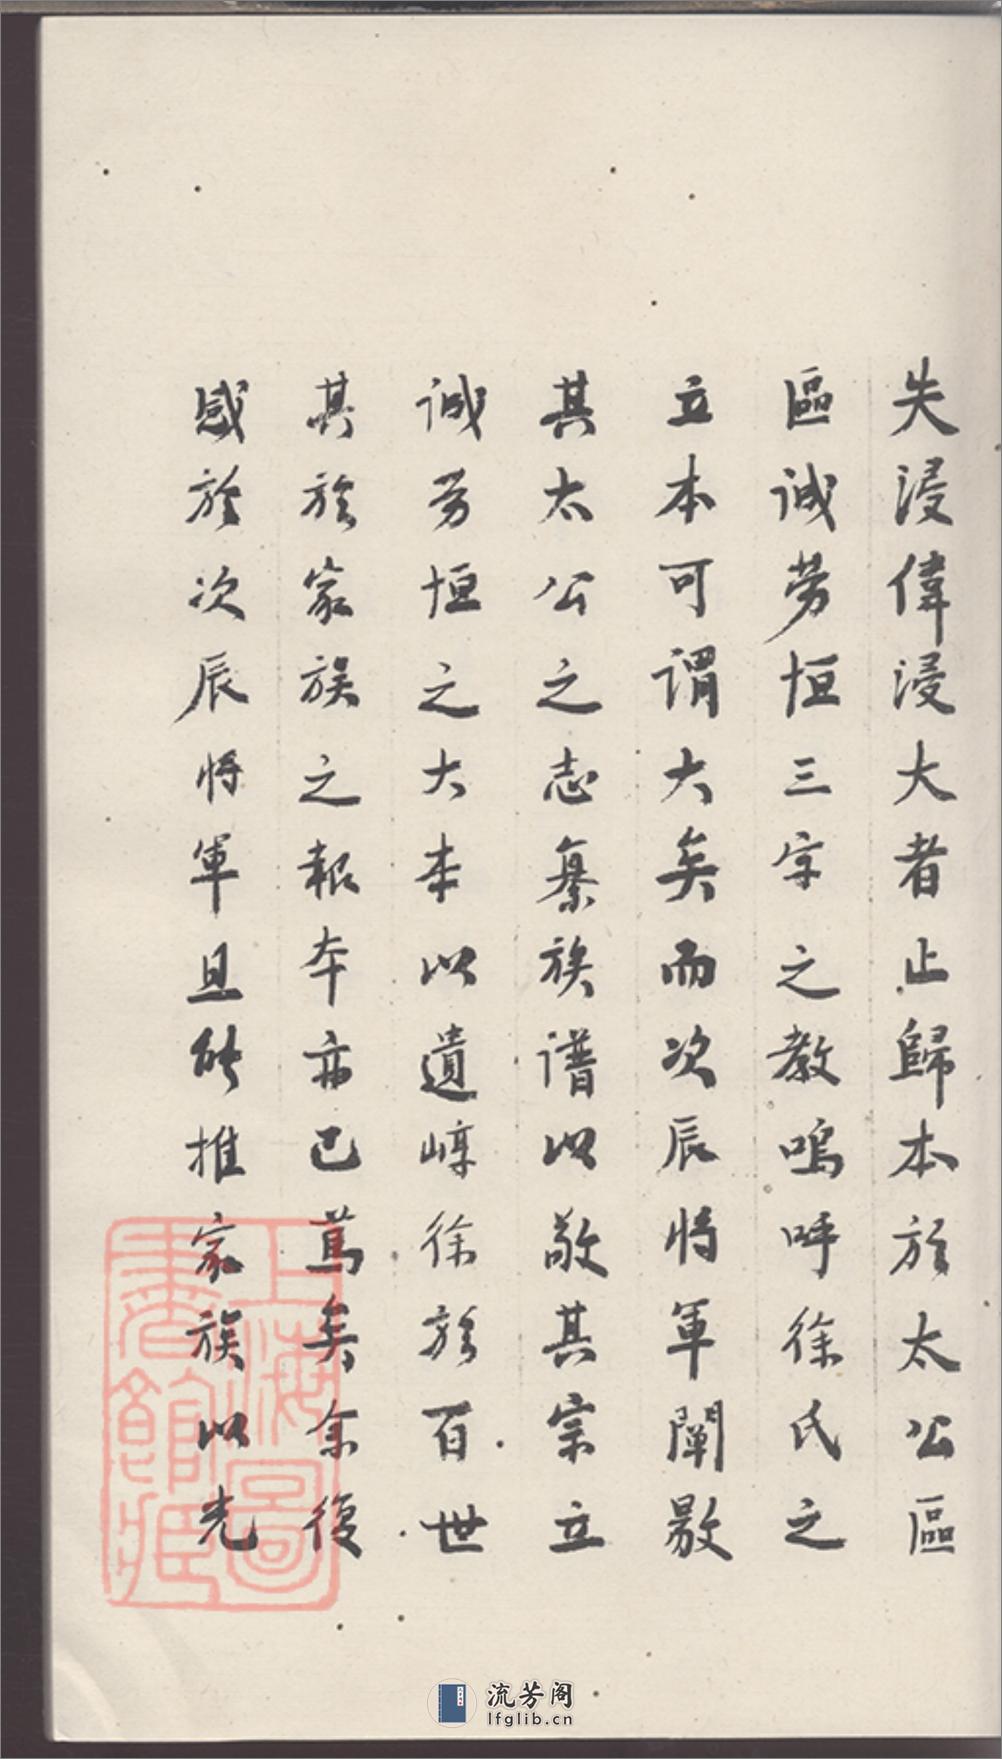 失浸偉浸大者止歸本於太公區
區誠勞恒三字之教嗚呼徐氏之
立本可謂大矣而次辰將軍闡敭
其太公之志纂族譜以敬其宗立
誠勞恒之大本以遺嶂徐於百世
其於家族之報本亦已蔦矣余復
感於次辰將軍且能推家族以光
上海圖
書館藏
流芳阁
lfglib.cn